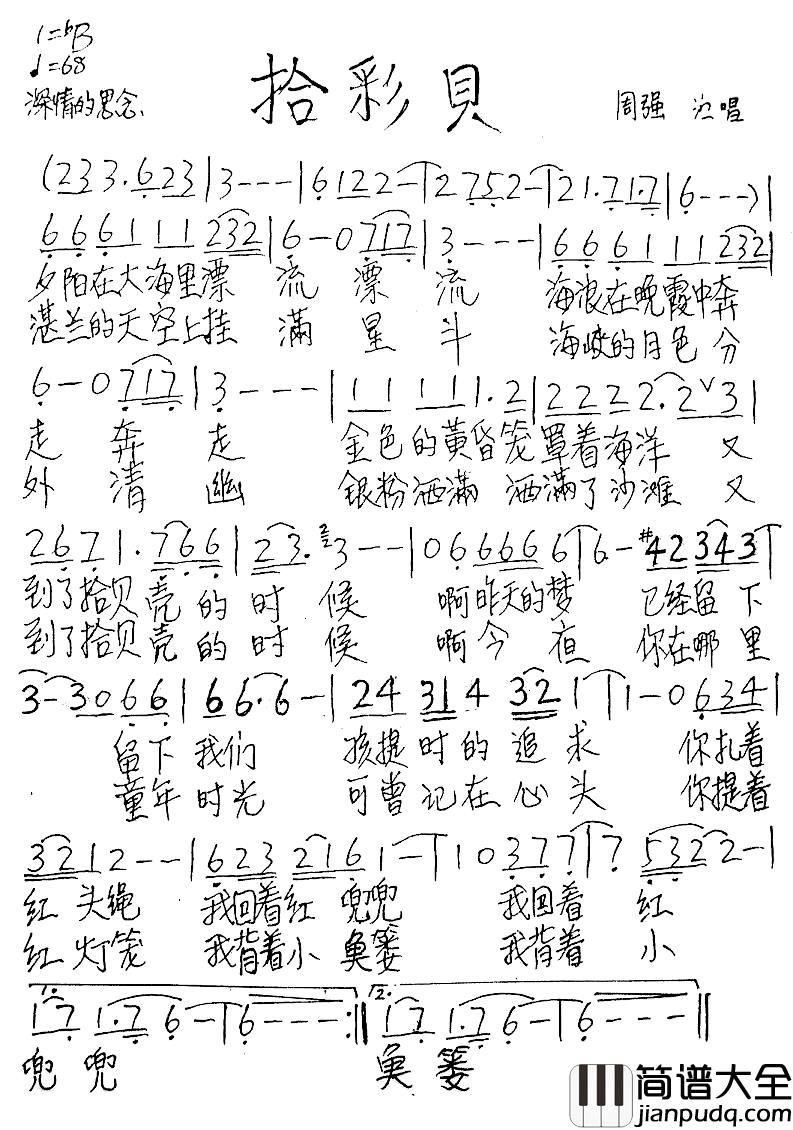 1=♭B
♩=68
深情的思念、
拾彩貝
周强 演唱
(2 3 3. 6 2 3 | 3 - - - | 6 1 2 2 - | 2 7 5 2 - | 2 1. 7 1. 7 | 6 - - -) |
6 6 6 1 1 1 2 3 2 | 6 - 0 7 1 7 | 3 - - - | 6 6 6 1 1 1 2 3 2 |
夕阳在大海里漂 流 漂 流 海浪在晚霞中奔
湛兰的天空上挂 滿 星 斗 海峡的月色分
6 - 0 7 1 7 | 3 - - - | 1 1 1 1 1. 2 | 2 2 2 2. 2 ∨ 3 |
走 奔 走 金色的黄昏笼罩着海洋 又
外 清 幽 银粉洒滿 洒滿了沙滩 又
2 6 7 1. 7 6 6 | 2 3. 3 - - | 0 6 6 6 6 6 | 6 - #4 2 3 4 3 |
到了拾贝壳的时 候 啊昨天的梦 已经留下
到了拾贝壳的时 候 啊今 夜 你在哪里
3 - 3 0 6 6 | 6 6. 6 - | 2 4 3 1 4 3 2 1 | 1 - 0 6 3 4 |
留下我们 孩提时的追求 你扎着
童年时光 可曾记在心头 你提着
3 2 1 2 - - | 6 2 3 2 1 6 1 - | 1 0 3 7 7 | 7 5 3 2 2 - |
红头绳 我回着红 兜兜 我回着 红
红灯笼 我背着小 奂篓 我背着 小
1. 2.
1 7 1. 7 6 - | 6 - - - :|| 1 7 1. 7 6 - | 6 - - - ||
兜 兜 奂 篓
简谱大全
jianpudq.com